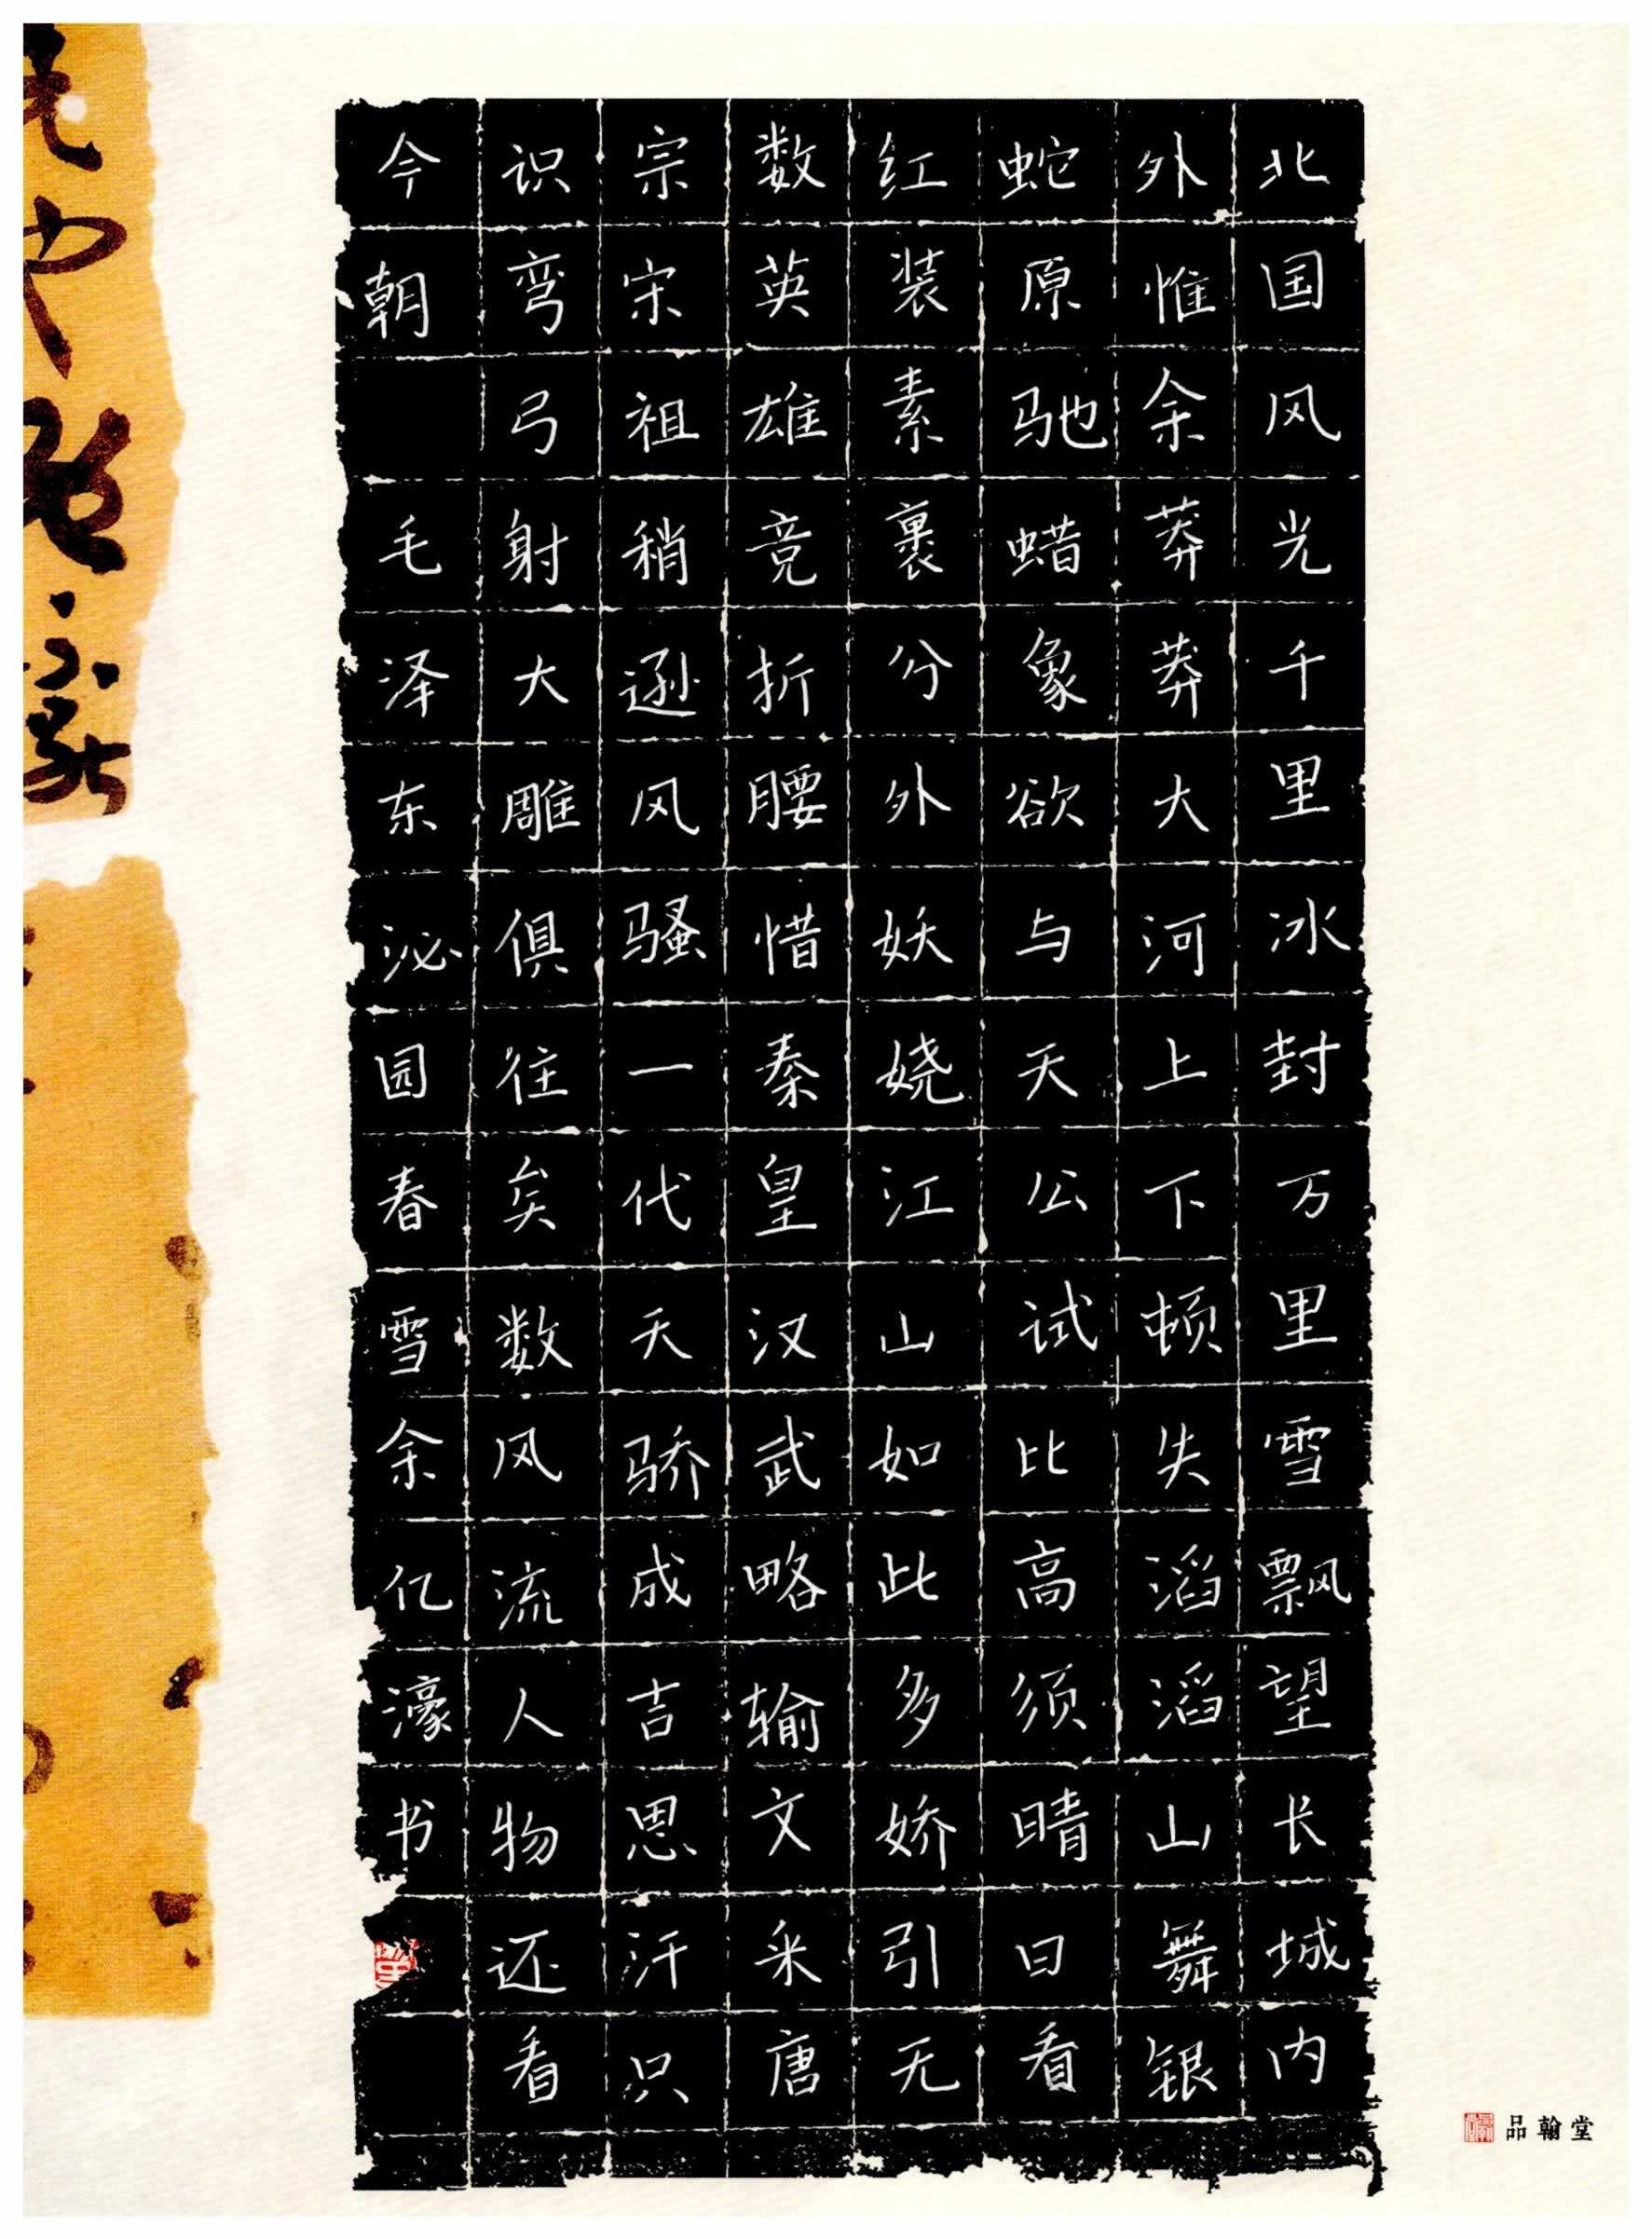 北国风光千里冰封万里雪飘望长城内
外惟余莽莽大河上下顿失滔滔山舞银
蛇原驰蜡象欲与天公试比高须晴日看
红装素裹分外妖娆江山如此多娇引无
数英雄竞折腰惜秦皇汉武略输文采唐
宗宋祖稍逊风骚一代天骄成吉思汗只
识弯弓射大雕俱往矣数风流人物还看
今朝 毛泽东沁园春雪余亿濠书
品翰堂